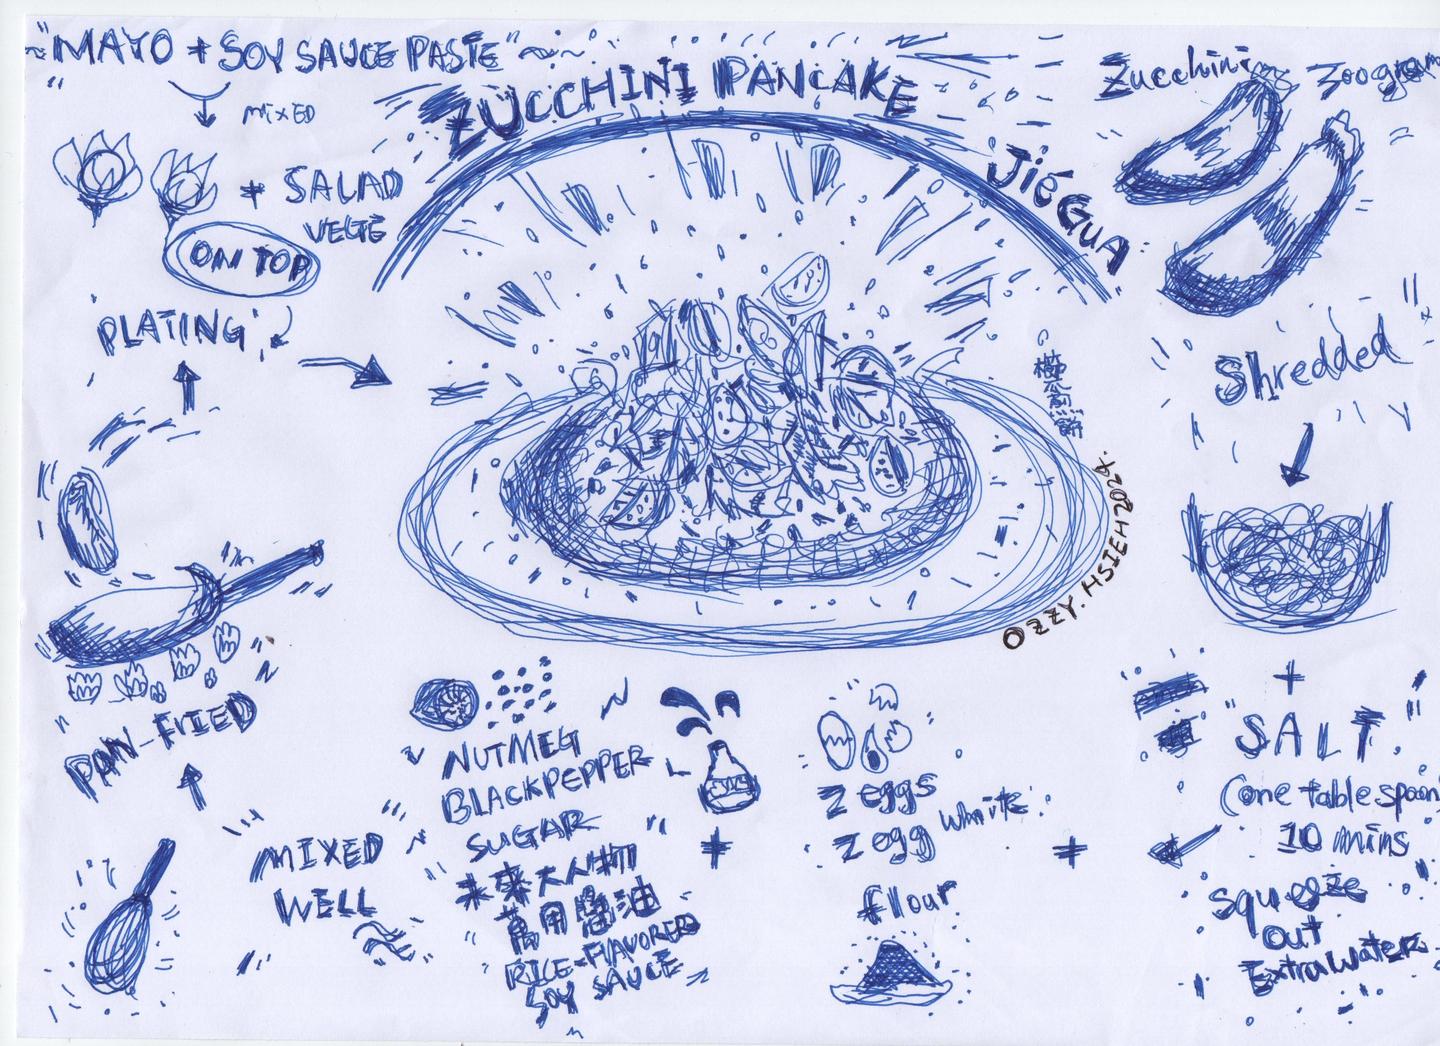 "MAYO + SOY SAUCE PASTE"
MIXED
+ SALAD
VEGE
ON TOP
PLATING
ZUCCHINI PANCAKE
JiéGUA
櫛瓜煎餅
OZZY.HSIEH 2024.
Zucchini 300gram
Shredded
+
"SALT"
(one table spoon
10 mins
squeeze
out
Extra Water
+
2 eggs
2 egg white
flour
+
NUTMEG
BLACKPEPPER
SUGAR
未來大人物
萬用醬油
RICE-FLAVORED
SOY SAUCE
MIXED
WELL
PAN-FRIED